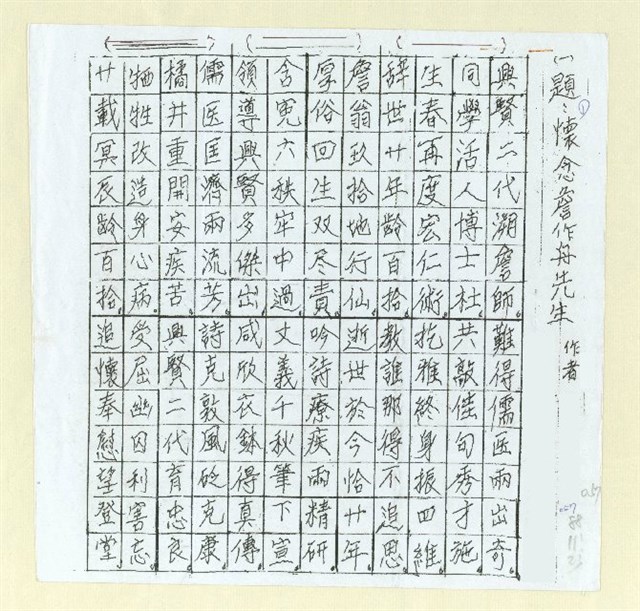 (一) 題:懷念詹作舟先生 作者
①
興賢二代溯詹師難得儒医兩出奇
同學活人博士杜共敲佳句秀才施
生春再度宏仁術扢雅終身振四維
辞世廿年齡百拾教誰那得不追思
詹翁玖拾地行仙逝世於今恰廿年
厚俗回生双尽責吟詩療疾兩精研
含寃六秩牢中過文義千秋筆下宣
領導興賢多傑出咸欣衣鉢得真傳
儒医匡濟兩流芳詩克敦風砭克康
橘井重開安疾苦興賢二代育忠良
牺牲改造身心病受屈幽囚利害忘
廿載冥辰齡百拾追懷奉慰望登堂
057
88
11.
23